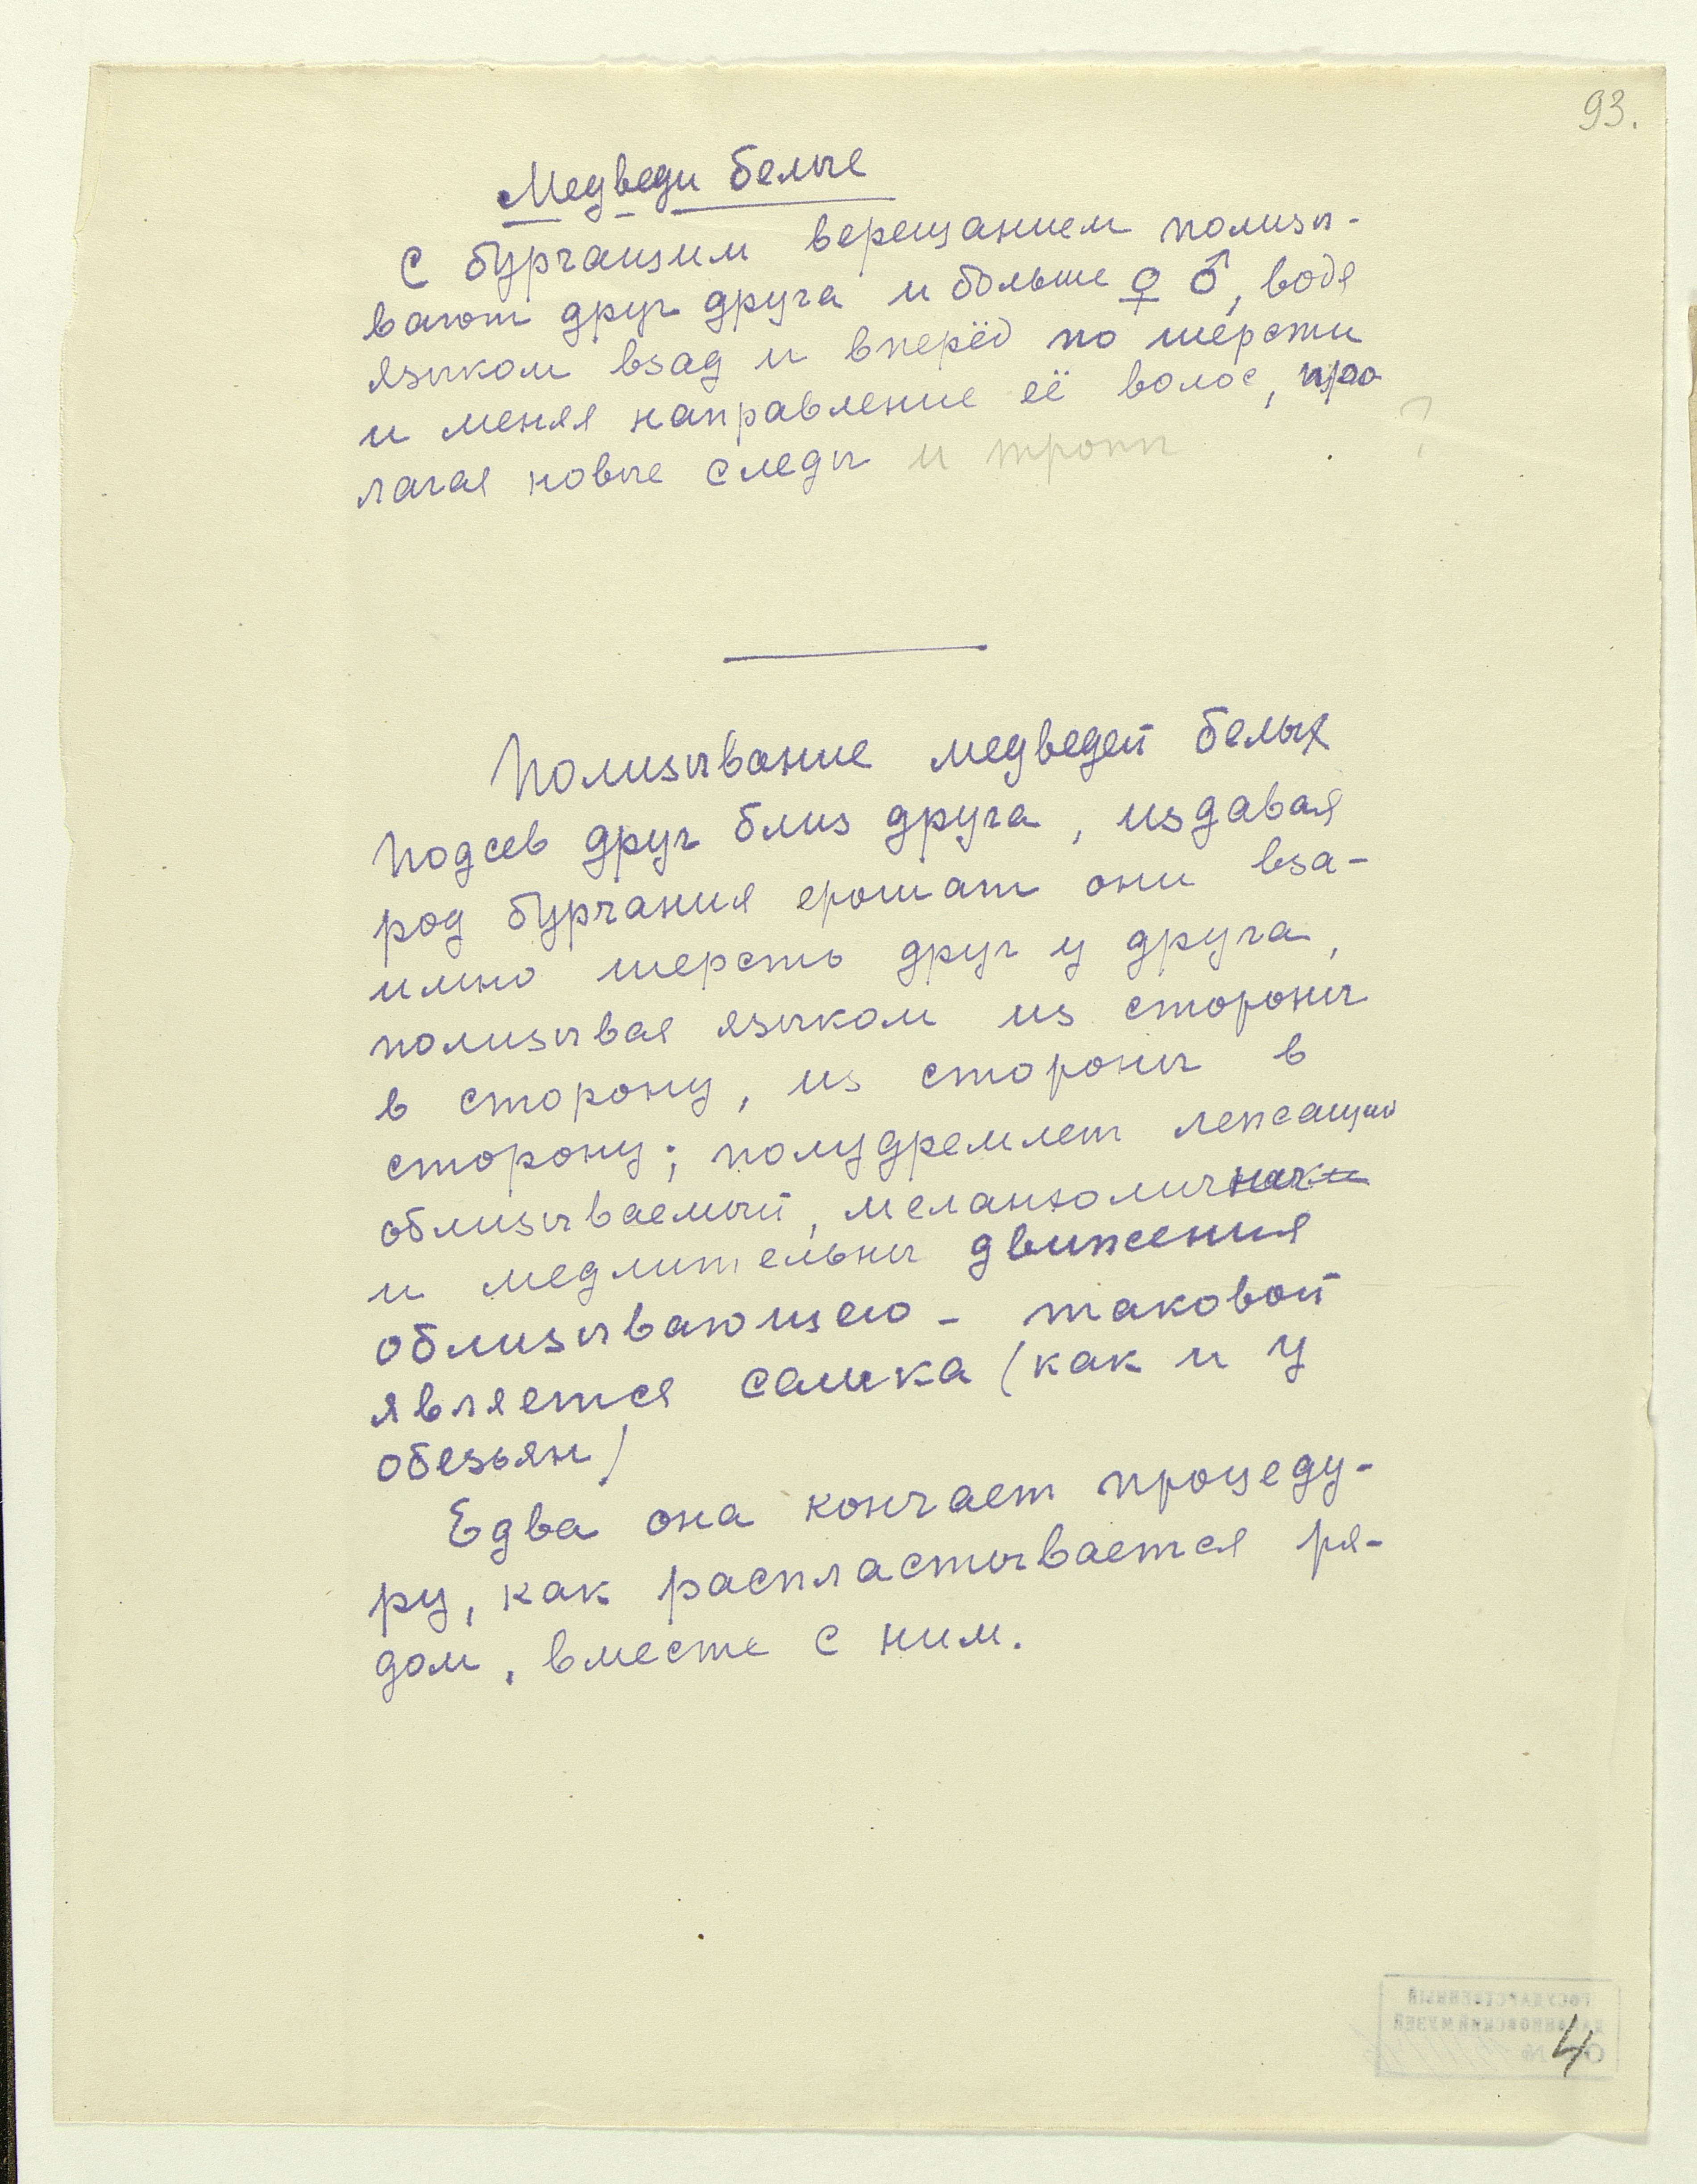 93.
Медведи белые
С бурчащим верещанием полизы-
вают друг друга и больше ♀ ♂, водя
языком взад и вперёд по шерсти
и меняя направление её волос, про
лагая новые следы и тропы ?
Полизывание медведей белых
Подсев друг близ друга, издавая
род бурчания ерошат они вза-
имно шерсть друг у друга,
полизывая языком из стороны
в сторону, из стороны в
сторону; полудремлет лежащий
облизываемый, меланхолич
и медлительны движения
облизывающею - таковой
является самка (как и у
обезьян)
Едва она кончает процеду-
ру, как распластывается ря-
дом, вместе с ним.
ГОСУДАРСТВЕННЫЙ
ДАРВИНОВСКИЙ МУЗЕЙ
4